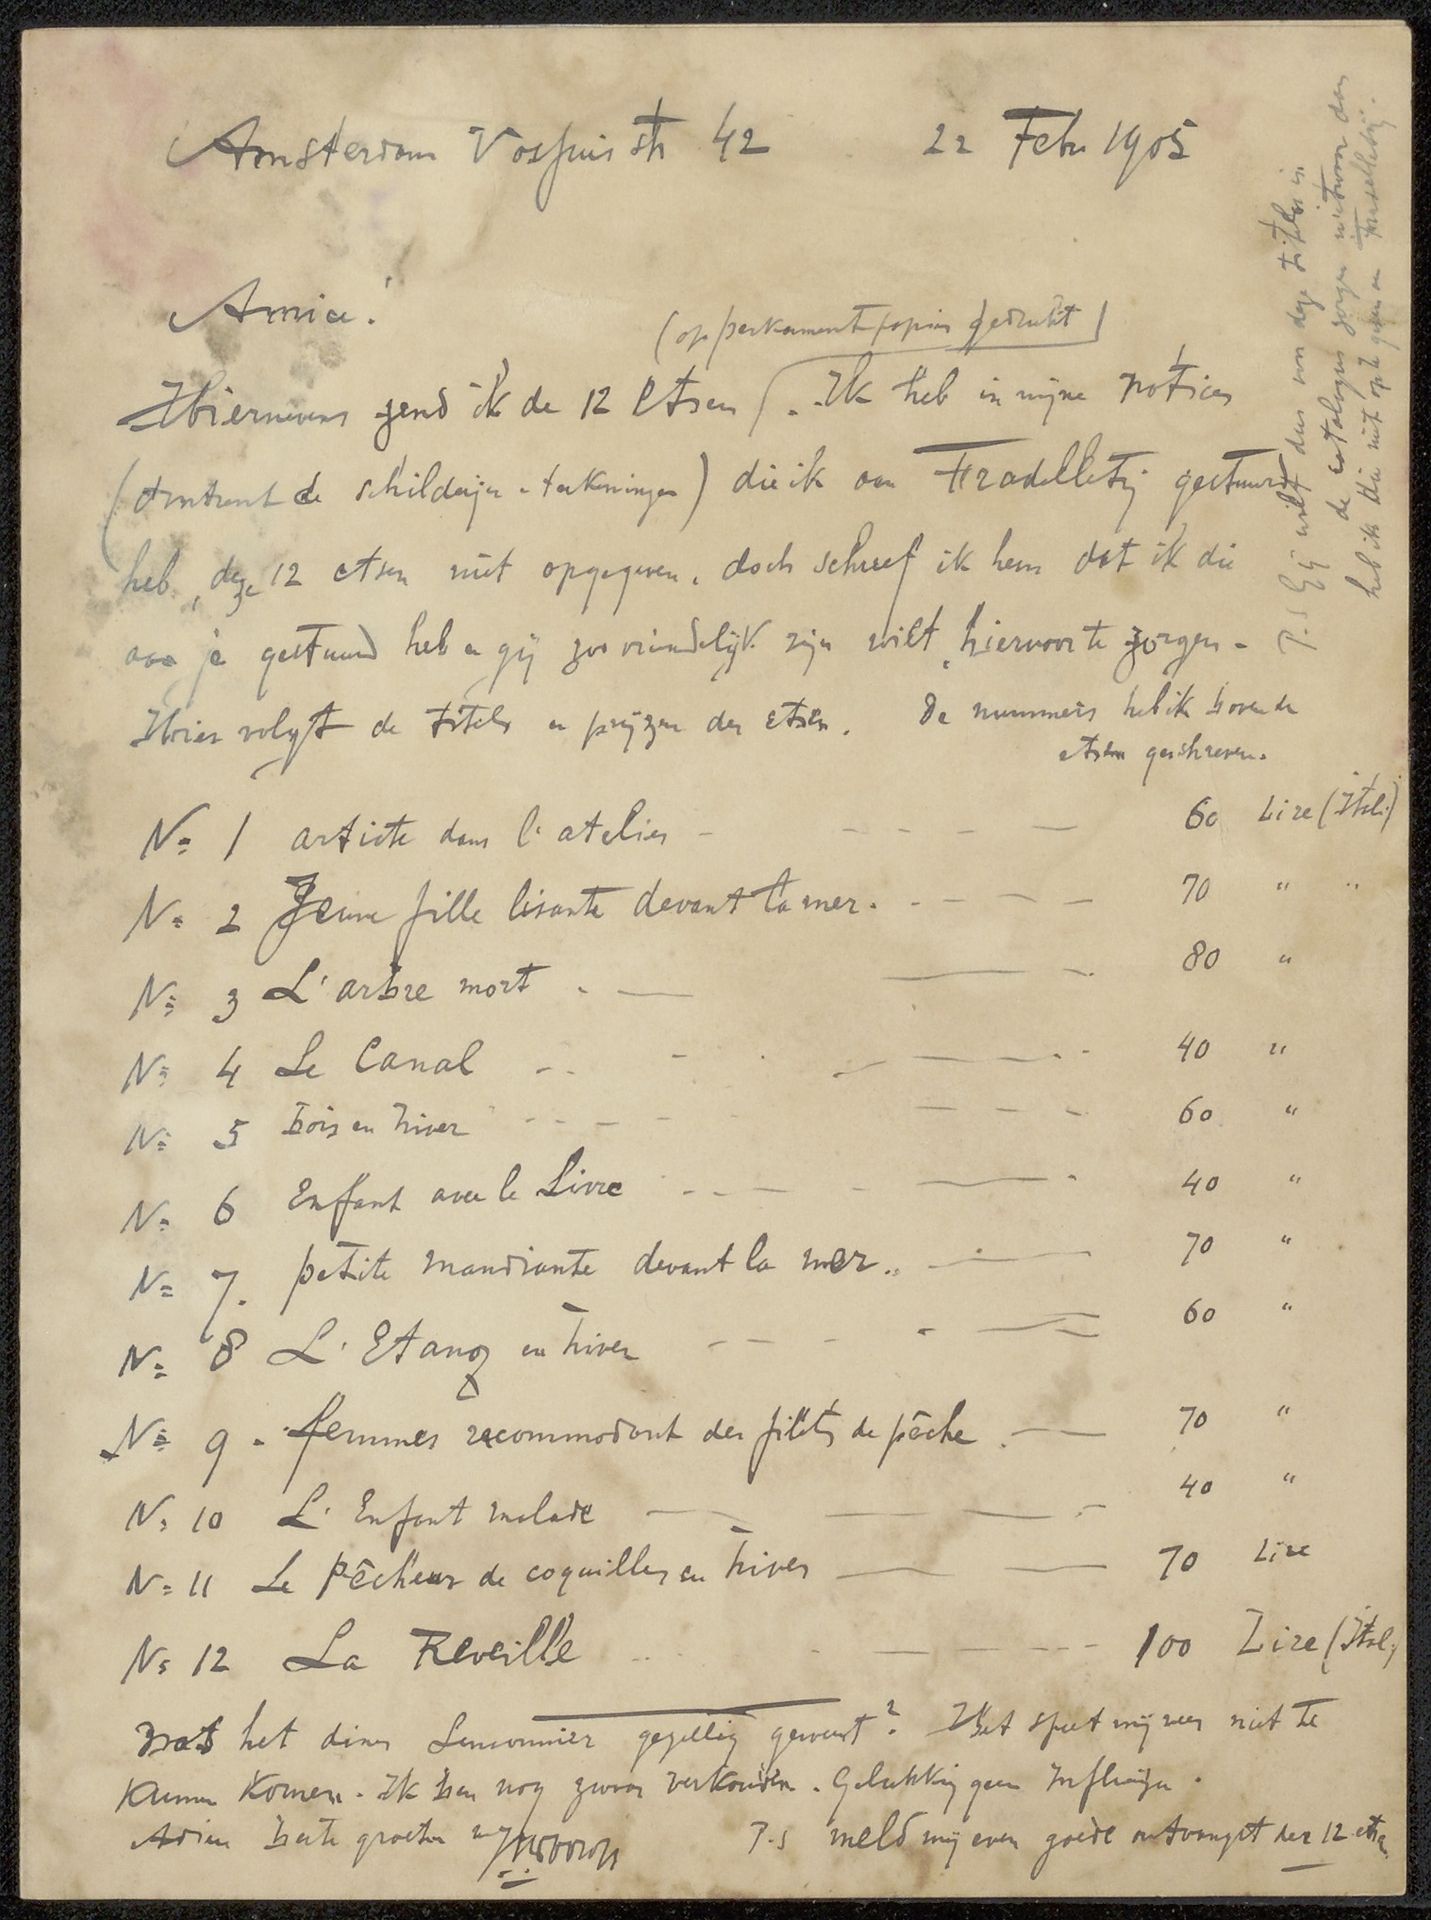 Amsterdam Vossiusstr 42 22 Febr 1905
Amice!
(op perkament papier gedrukt)
Hiernevens zend ik de 12 Etsen. Ik heb in mijne notices
(omtrent de schilderijen en teekeningen) die ik aan Fradelletij gestuurd
heb, deze 12 etsen niet opgegeven, doch schreef ik hem dat ik die
aan je gestuurd heb en gij zoo vriendelijk zijn wilt, hiervoor te zorgen -
Hier volgt de titels en prijzen der etsen. De nummers heb ik boven de
etsen geschreven.
No 1 artiste dans l'atelier - 60 Lire (Itali)
No 2 Jeune fille lisante devant la mer. 70 " "
No 3 L'arbre mort 80 "
No 4 Le Canal 40 "
No 5 bois en hiver 60 "
No 6 Enfant avec le Livre 40 "
No 7. petite mandiante devant la mer. 70 "
No 8 L'Etang en hiver 60 "
No 9 - femmes recommodant des filets de pêche 70 "
No 10 L'Enfant malade 40 "
No 11 Le Pêcheur de coquilles en hiver 70 Lire
No 12 La Reveille 100 Lire (Ital.)
Was het diner gezellig geweest? Het speet mij zeer niet te
kunnen komen. Ik ben nog zwaar verkouden. Gelukkig geen Influenza.
Adieu beste groeten P.S meld mij even goede ontvangst der 12 etsen
P.S Gij wilt dus voor deze titels in
de catalogus zorgen niet waar daar
heb ik die niet op te geven aan Fradelletij.